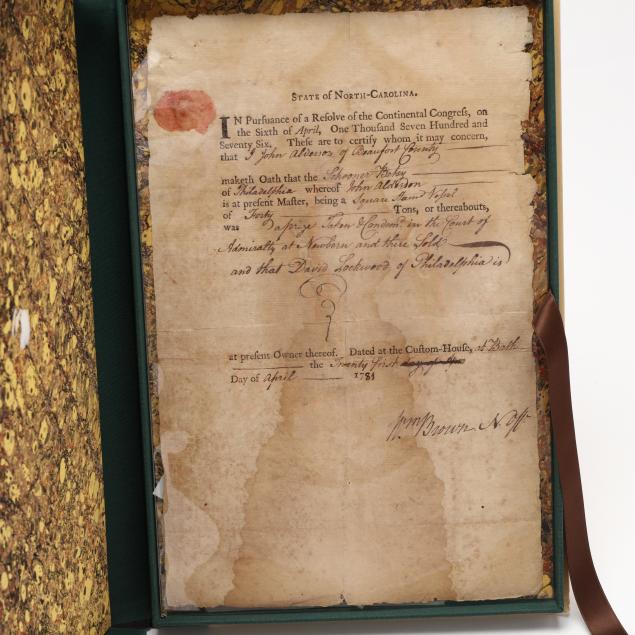 STATE of NORTH-CAROLINA.
IN Pursuance of a Resolve of the Continental Congress, on
the Sixth of April, One Thousand Seven Hundred and
Seventy Six, These are to certify whom it may concern,
that I John Alderson of Beaufort County
maketh Oath that the Schooner Betsy
of Philadelphia whereof John Alderson
is at present Master, being a Square Stern'd Vessel
of Forty Tons, or thereabouts,
was a prize Taken & Condemd. in the Court of
Admiralty at Newbern and there Sold
and that David Lockwood of Philadelphia is
at present Owner thereof. Dated at the Custom-House, at Bath
the Twenty first day of the
Day of April 1781
Wm Brown N. Off